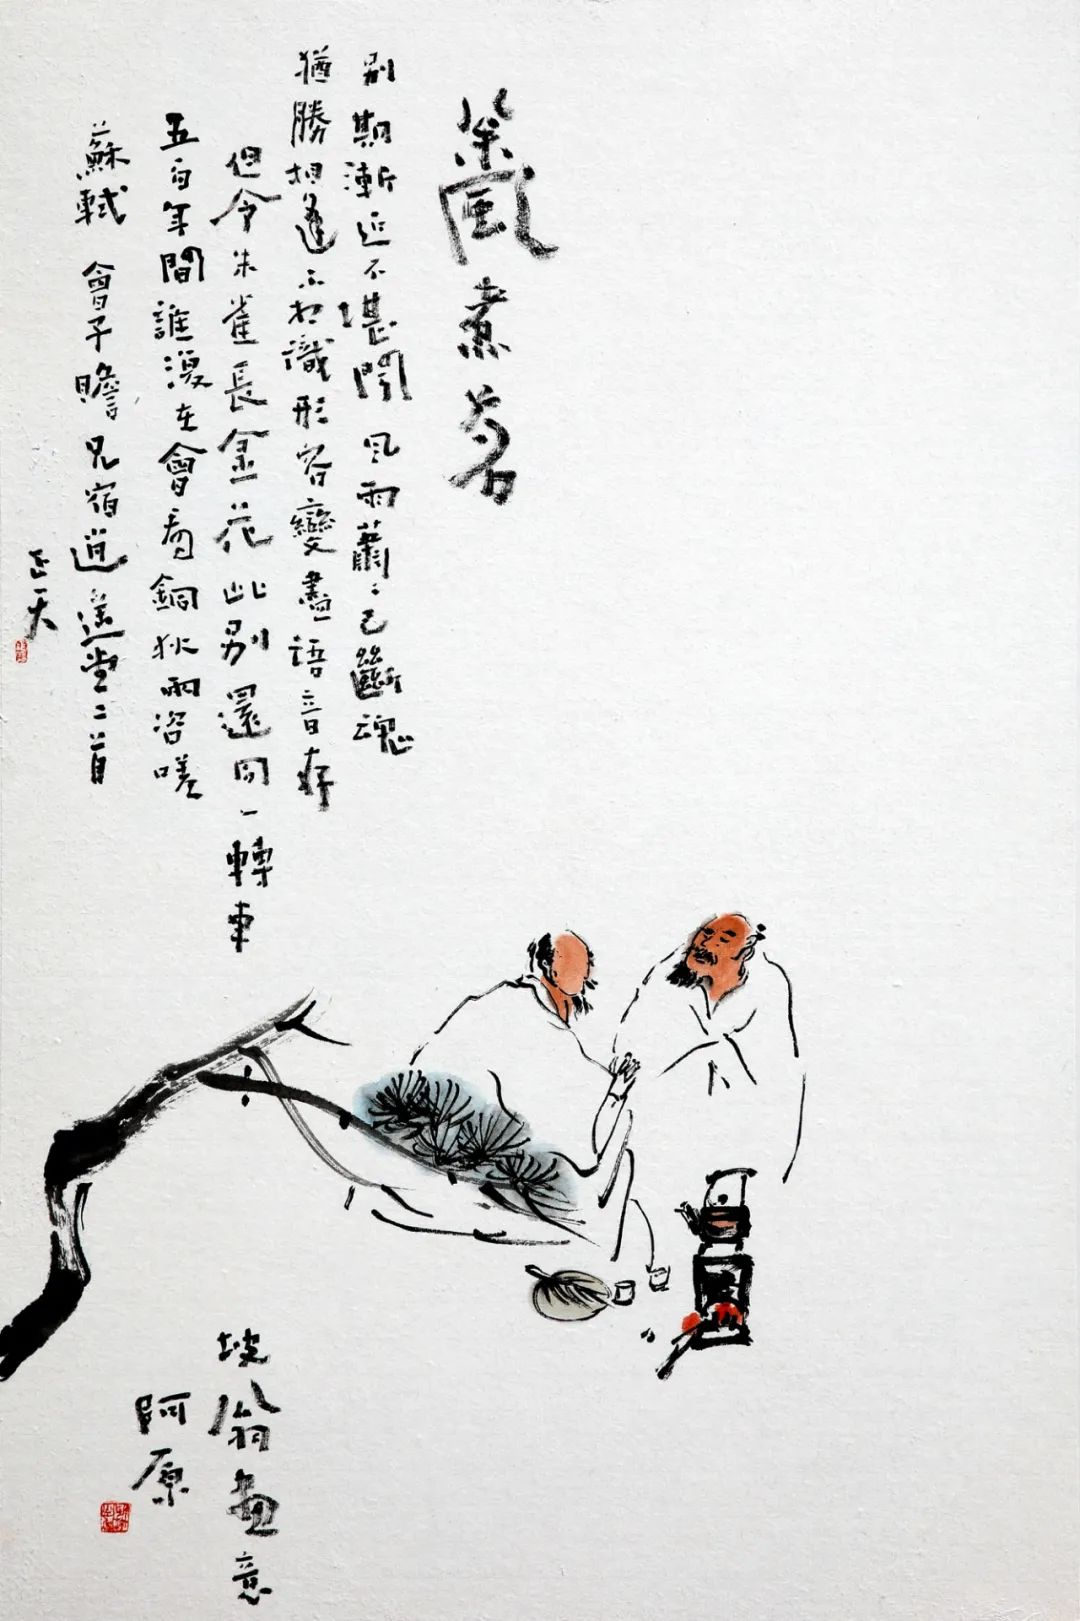 煮茗
別期漸近不堪聞風雨蕭〻已斷魂
猶勝相逢不相識形容變盡語音存
但令朱雀長金花此別還同一轉車
五百年間誰復在會看銅狄兩咨嗟
蘇軾 會子瞻兄宿逍遙堂二首
正天
坡翁畫意
阿原